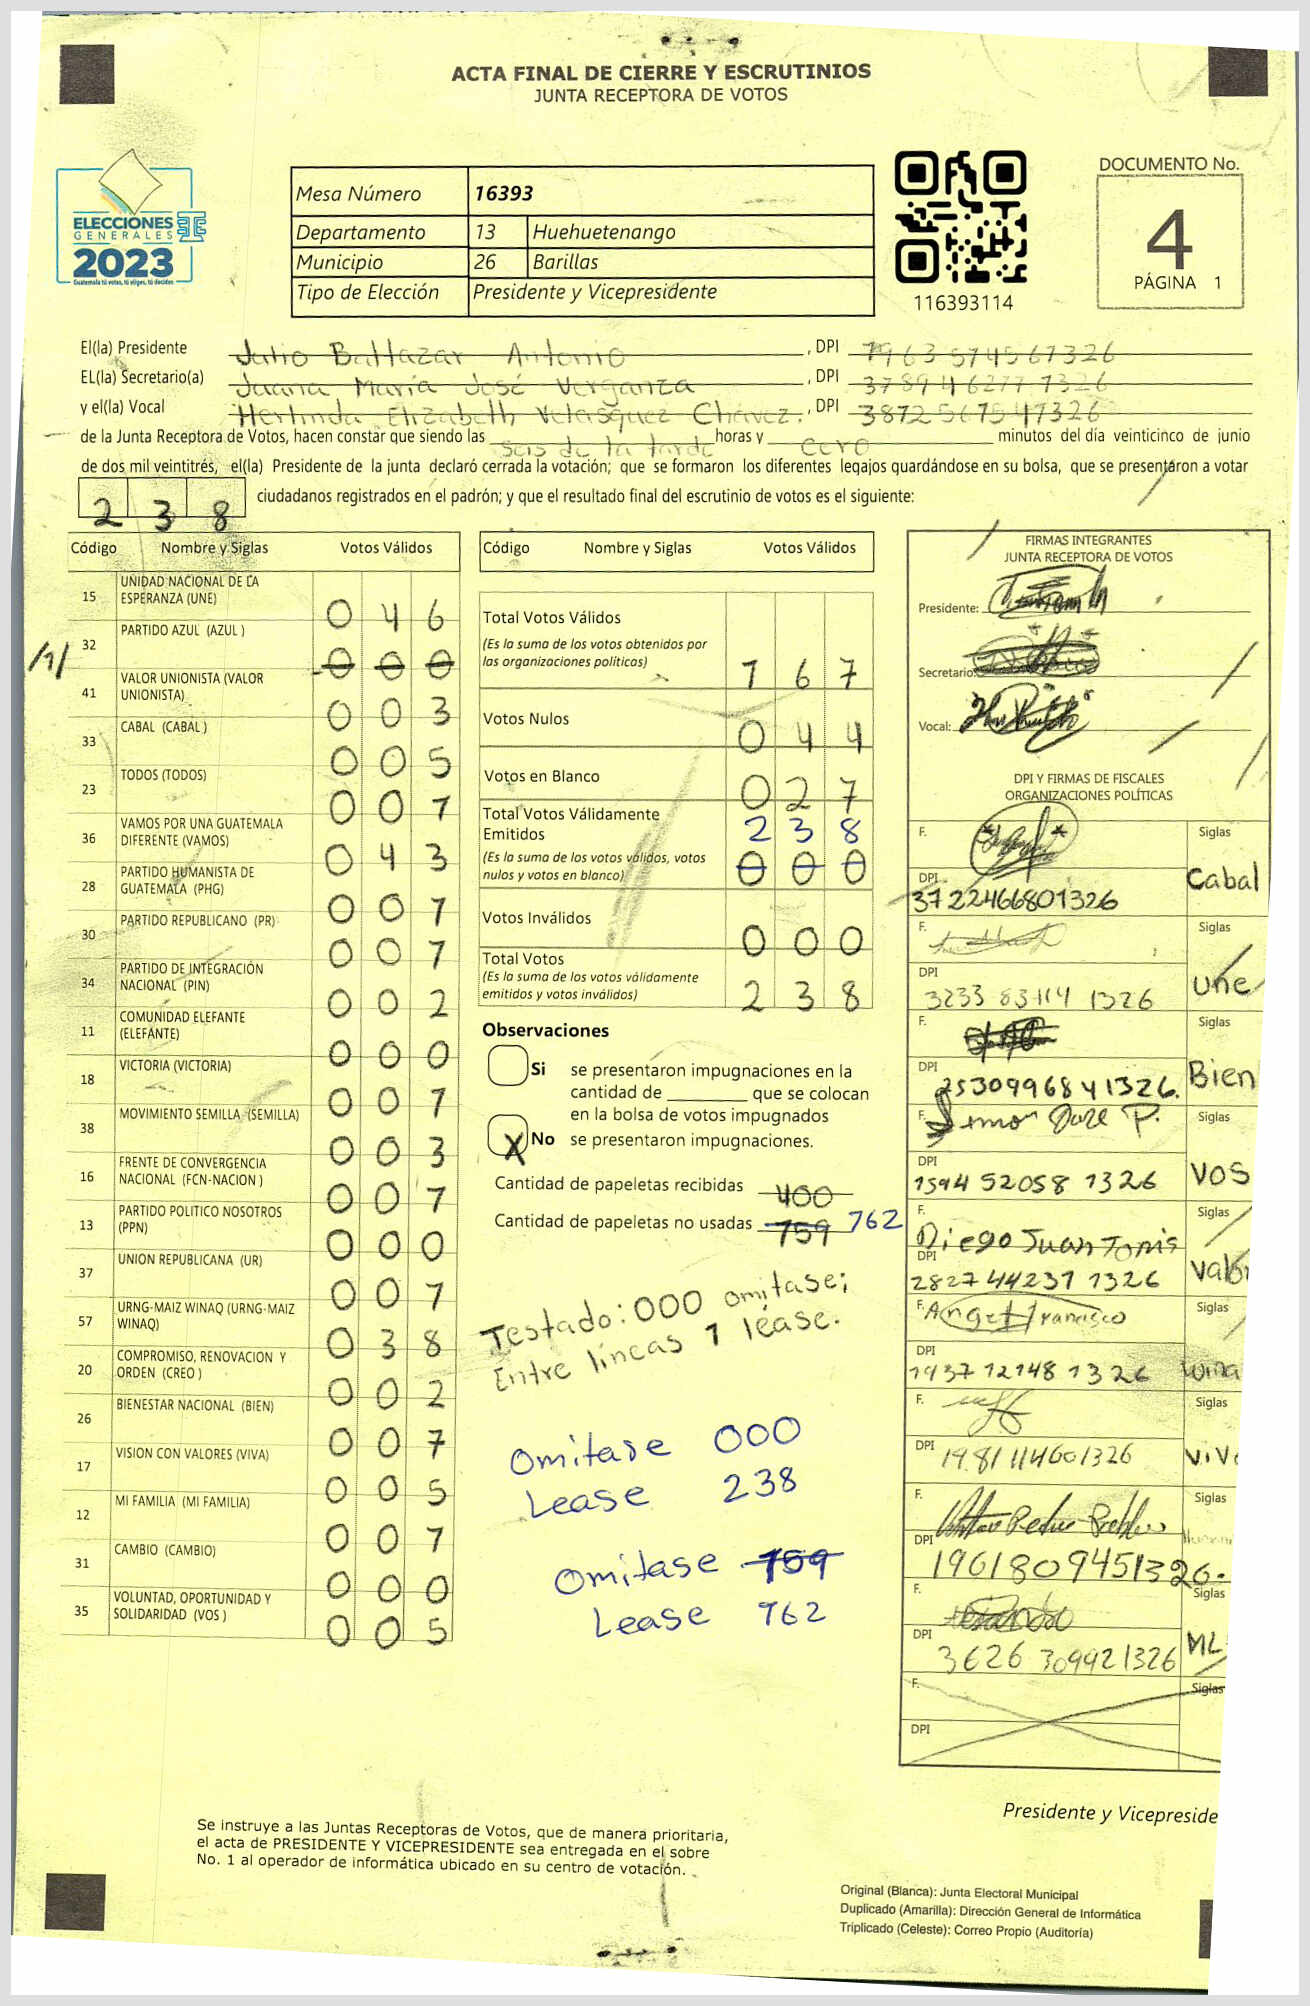 ACTA FINAL DE CIERRE Y ESCRUTINIOS
JUNTA RECEPTORA DE VOTOS
ELECCIONES
GENERALES
2023
Guatemala tú votas, tú eliges, tú decides
Mesa Número 16393
Departamento 13 Huehuetenango
Municipio 26 Barillas
Tipo de Elección Presidente y Vicepresidente
116393114
DOCUMENTO No.
4
PÁGINA 1
El(la) Presidente Julio Baltazar Antonio , DPI 1963574567326
EL(la) Secretario(a) Juana María José Verganza , DPI 3789462771326
y el(la) Vocal Herlinda Elizabeth Velásquez Chávez. , DPI 3872567547326
de la Junta Receptora de Votos, hacen constar que siendo las seis de la tarde horas y cero minutos del día veinticinco de junio
de dos mil veintitrés, el(la) Presidente de la junta declaró cerrada la votación; que se formaron los diferentes legajos guardándose en su bolsa, que se presentaron a votar
238 ciudadanos registrados en el padrón; y que el resultado final del escrutinio de votos es el siguiente:
Código Nombre y Siglas Votos Válidos
15 UNIDAD NACIONAL DE LA ESPERANZA (UNE) 046
/1/ 32 PARTIDO AZUL (AZUL ) 000
41 VALOR UNIONISTA (VALOR UNIONISTA) 003
33 CABAL (CABAL ) 005
23 TODOS (TODOS) 001
36 VAMOS POR UNA GUATEMALA DIFERENTE (VAMOS) 043
28 PARTIDO HUMANISTA DE GUATEMALA (PHG) 001
30 PARTIDO REPUBLICANO (PR) 001
34 PARTIDO DE INTEGRACIÓN NACIONAL (PIN) 002
11 COMUNIDAD ELEFANTE (ELEFANTE) 000
18 VICTORIA (VICTORIA) 001
38 MOVIMIENTO SEMILLA (SEMILLA) 003
16 FRENTE DE CONVERGENCIA NACIONAL (FCN-NACION ) 001
13 PARTIDO POLITICO NOSOTROS (PPN) 000
37 UNION REPUBLICANA (UR) 001
57 URNG-MAIZ WINAQ (URNG-MAIZ WINAQ) 038
20 COMPROMISO, RENOVACION Y ORDEN (CREO ) 002
26 BIENESTAR NACIONAL (BIEN) 007
17 VISION CON VALORES (VIVA) 005
12 MI FAMILIA (MI FAMILIA) 001
31 CAMBIO (CAMBIO) 000
35 VOLUNTAD, OPORTUNIDAD Y SOLIDARIDAD (VOS ) 005
Código Nombre y Siglas Votos Válidos
Total Votos Válidos
(Es la suma de los votos obtenidos por
las organizaciones políticas) 167
Votos Nulos 044
Votos en Blanco 027
Total Votos Válidamente
Emitidos 238
(Es la suma de los votos válidos, votos
nulos y votos en blanco) 000
Votos Inválidos 000
Total Votos
(Es la suma de los votos válidamente
emitidos y votos inválidos) 238
Observaciones
Si se presentaron impugnaciones en la
cantidad de ________ que se colocan
en la bolsa de votos impugnados
X No se presentaron impugnaciones.
Cantidad de papeletas recibidas 400
Cantidad de papeletas no usadas 159 162
Testado: 000 omitase;
Entre líneas 1 léase.
Omitase 000
Lease 238
Omitase 159
Lease 162
FIRMAS INTEGRANTES
JUNTA RECEPTORA DE VOTOS
Presidente:
Secretario:
Vocal:
DPI Y FIRMAS DE FISCALES
ORGANIZACIONES POLÍTICAS
F. Siglas
DPI 3722466801326 Cabal
F. Siglas
DPI 3233 83114 1326 Une
F. Siglas
DPI 2530996841326. Bien
F. Siglas
DPI 1594 52058 1326 VOS
F. Diego Juan Tomás Siglas
DPI 2827 44237 1326 Valor
F. Angel Francisco Siglas
DPI 1937 12148 1326 Wina
F. Siglas
DPI 1981 114601326 ViVa
F. Siglas
DPI 1961809451326.
F. Siglas
DPI 3626 309921326 ML
F. Siglas
DPI
Presidente y Vicepreside
Se instruye a las Juntas Receptoras de Votos, que de manera prioritaria,
el acta de PRESIDENTE Y VICEPRESIDENTE sea entregada en el sobre
No. 1 al operador de informática ubicado en su centro de votación.
Original (Blanca): Junta Electoral Municipal
Duplicado (Amarilla): Dirección General de Informática
Triplicado (Celeste): Correo Propio (Auditoría)